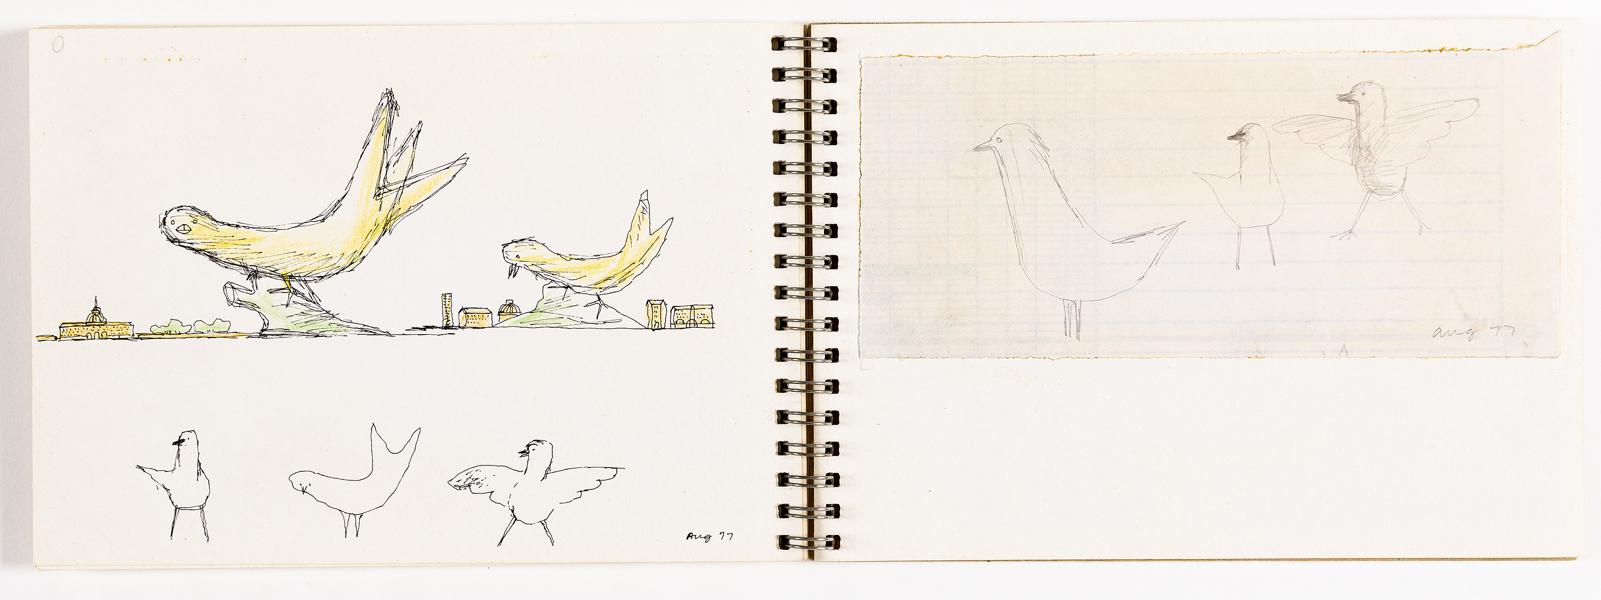 Aug 77
aug 77